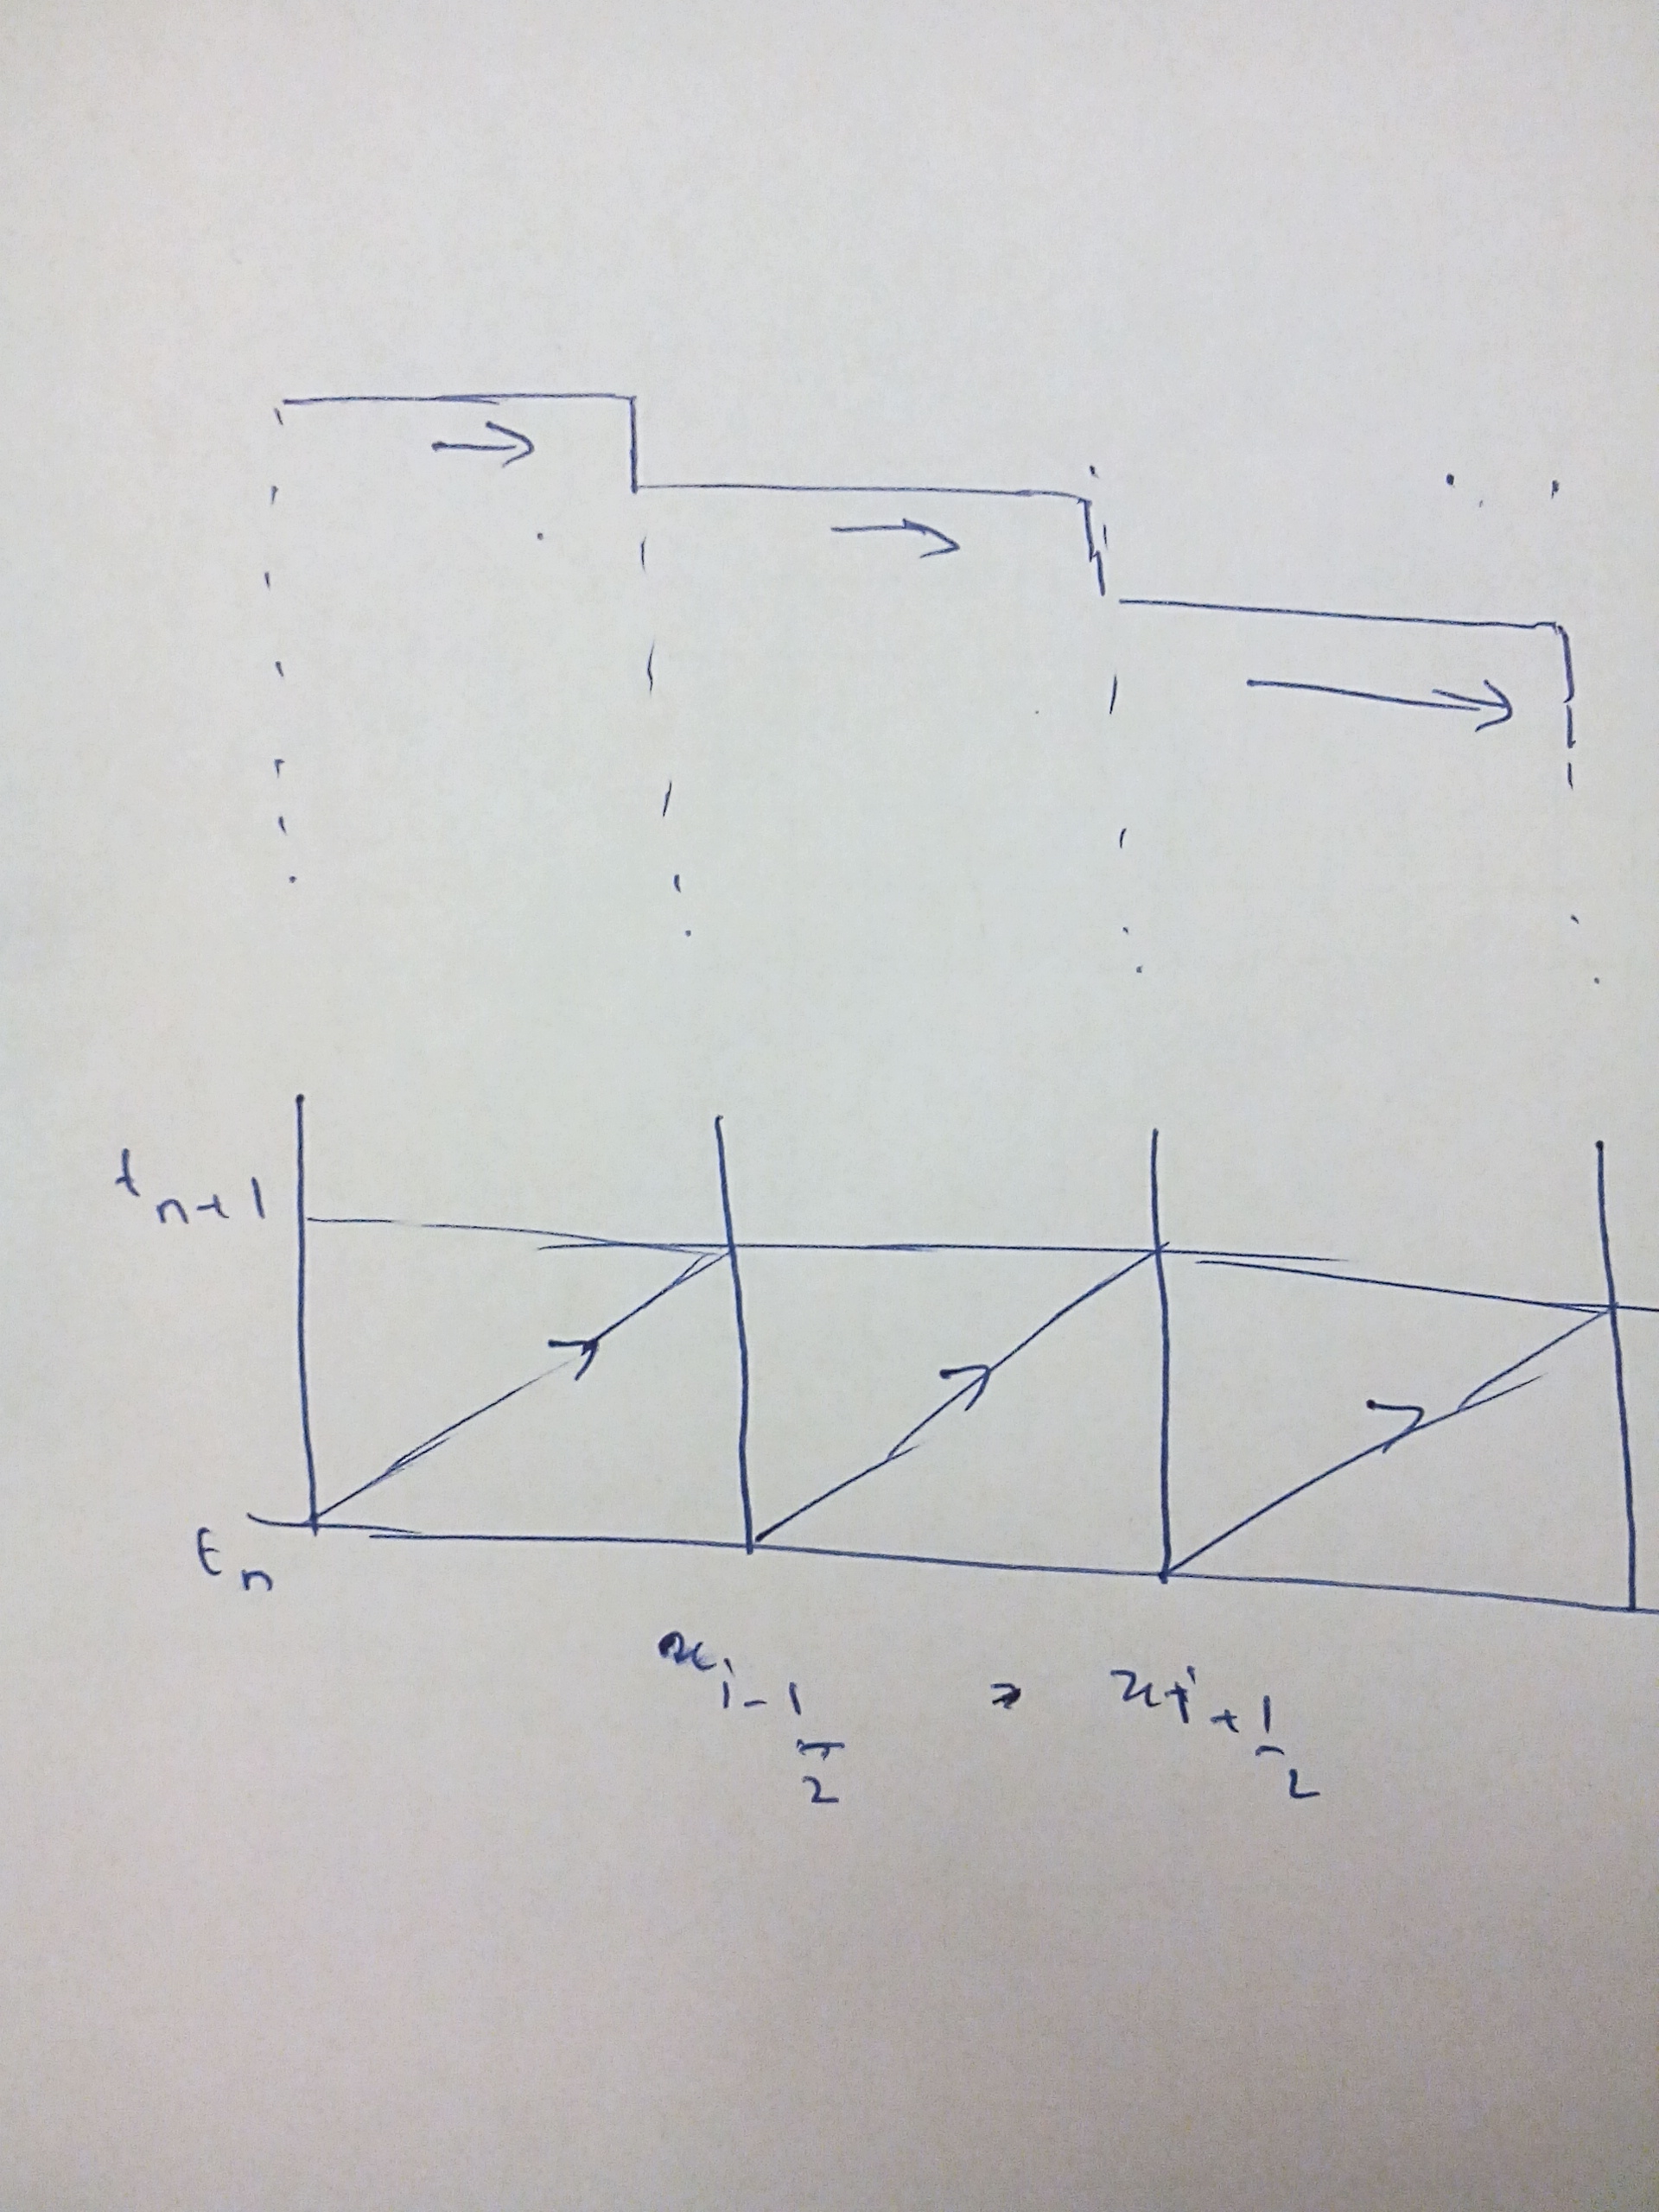 t_{n+1}
t_n
x_{i-\frac{1}{2}} x_{i+\frac{1}{2}}